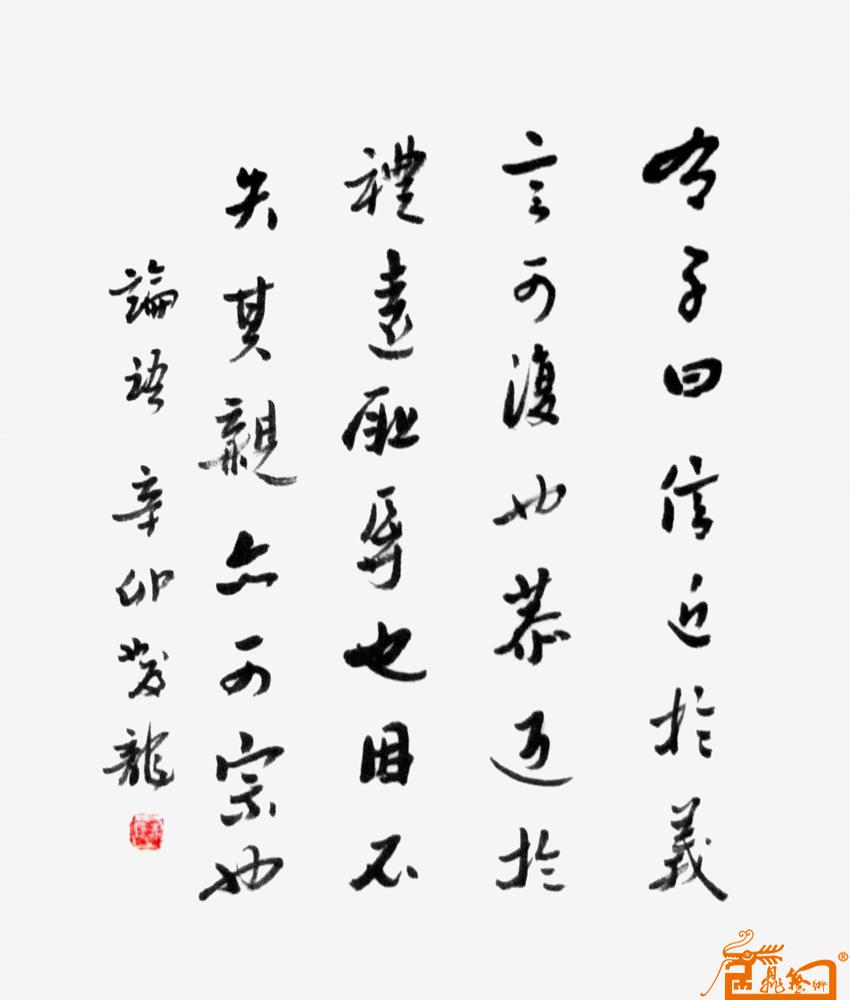 有子曰信近於義
言可復也恭近於
禮遠恥辱也因不
失其親亦可宗也
論語辛卯發龍